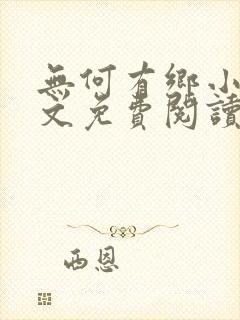 無何有鄉小
文免費閱讀
西恩